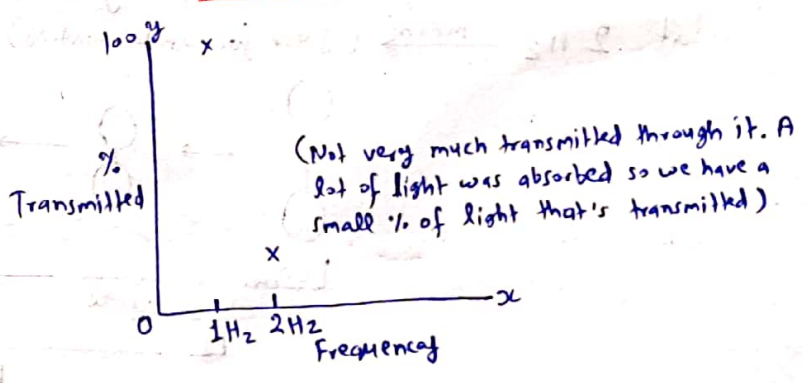 100 y
x
%
Transmitted
(Not very much transmitted through it. A
lot of light was absorbed so we have a
small % of light that's transmitted).
x
x
0
1Hz 2Hz
Frequency